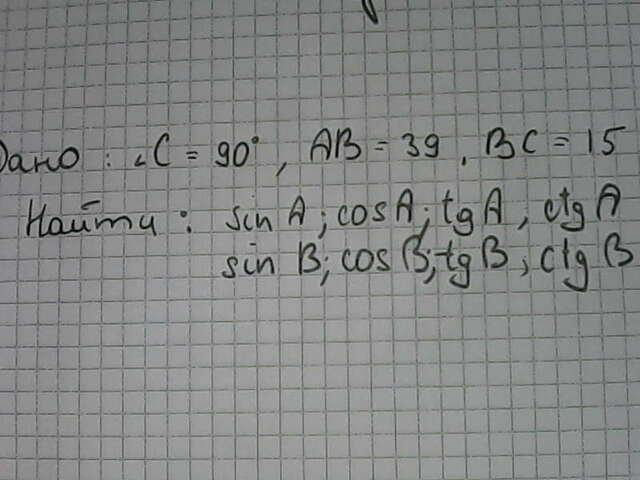 Дано: ∠C = 90°, AB = 39, BC = 15
Найти: sin A; cos A; tg A, ctg A
sin B; cos B; tg B, ctg B